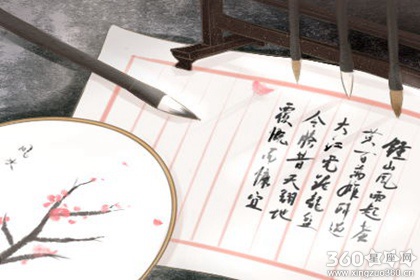 钟山风雨起苍
黄百万雄师过
大江虎踞龙盘
今胜昔天翻地
覆慨而慷宜
360星座网
www.xingzuo360.cn